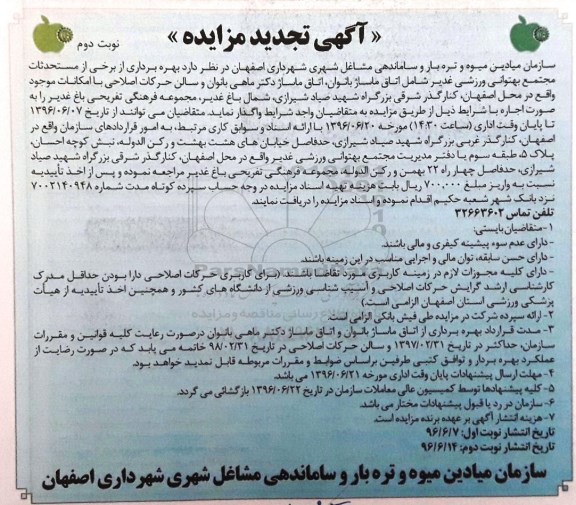 « آگهی تجدید مزایده »
نوبت دوم
سازمان میادین میوه و تره بار و ساماندهی مشاغل شهری شهرداری اصفهان در نظر دارد بهره برداری از برخی از مستحدثات
مجتمع بهتوانی ورزشی غدیر شامل اتاق ماساژ بانوان، اتاق ماساژ دکتر ماهی بانوان و سالن حرکات اصلاحی با امکانات موجود
واقع در محل اصفهان، کنارگذر شرقی بزرگراه شهید صیاد شیرازی، شمال باغ غدیر، مجموعه فرهنگی تفریحی باغ غدیر را به
صورت اجاره با شرایط ذیل از طریق مزایده به متقاضیان واجد شرایط واگذار نماید. متقاضیان می توانند از تاریخ ۱۳۹۶/۰۶/۰۷
تا پایان وقت اداری (ساعت ۱۴:۳۰) مورخه ۱۳۹۶/۰۶/۲۰ با ارائه اسناد و سوابق کاری مرتبط، به امور قراردادهای سازمان واقع در
اصفهان، کنارگذر غربی بزرگراه شهید صیاد شیرازی، حدفاصل خیابان های هشت بهشت و رکن الدوله، نبش کوچه احسان،
پلاک ۵، طبقه سوم یا دفتر مدیریت مجتمع بهتوانی ورزشی غدیر واقع در محل اصفهان، کنارگذر شرقی بزرگراه شهید صیاد
شیرازی، حدفاصل چهار راه ۲۲ بهمن و رکن الدوله، مجموعه فرهنگی تفریحی باغ غدیر مراجعه نموده و پس از اخذ تأییدیه
نسبت به واریز مبلغ ۷۰۰.۰۰۰ ریال بابت هزینه تهیه اسناد مزایده در وجه حساب سپرده کوتاه مدت شماره ۷۰۰۲۱۴۰۹۴۸
نزد بانک شهر شعبه حکیم اقدام نموده و اسناد مزایده را دریافت نمایند.
تلفن تماس ۳۲۶۶۳۶۰۲
۱- متقاضیان بایستی:
- دارای عدم سوء پیشینه کیفری و مالی باشند.
- دارای حسن سابقه، توان مالی و اجرایی مناسب در این زمینه باشند.
- دارای کلیه مجوزات لازم در زمینه کاربری مورد تقاضا باشند (برای کاربری حرکات اصلاحی دارا بودن حداقل مدرک
کارشناسی ارشد گرایش حرکات اصلاحی و آسیب شناسی ورزشی از دانشگاه های کشور و همچنین اخذ تأییدیه از هیأت
پزشکی ورزشی استان اصفهان الزامی است)
۲- ارائه سپرده شرکت در مزایده طی فیش بانکی الزامی است.
۳- مدت قرارداد بهره برداری از اتاق ماساژ بانوان و اتاق ماساژ دکتر ماهی بانوان درصورت رعایت کلیه قوانین و مقررات
سازمان، حداکثر در تاریخ ۱۳۹۷/۰۲/۳۱ و سالن حرکات اصلاحی در تاریخ ۹۸/۰۲/۳۱ خاتمه می یابد که در صورت رضایت از
عملکرد بهره بردار و توافق کتبی طرفین براساس ضوابط و مقررات مربوطه قابل تمدید خواهد بود.
۴- مهلت ارسال پیشنهادات پایان وقت اداری مورخه ۱۳۹۶/۰۶/۲۱ می باشد.
۵- کلیه پیشنهادها توسط کمیسیون عالی معاملات سازمان در تاریخ ۱۳۹۶/۰۶/۲۲ بازگشائی می گردد.
۶- سازمان در رد یا قبول پیشنهادات مختار می باشد.
۷- هزینه انتشار آگهی بر عهده برنده مزایده است.
تاریخ انتشار نوبت اول: ۹۶/۶/۷
تاریخ انتشار نوبت دوم: ۹۶/۶/۱۴
سازمان میادین میوه و تره بار و ساماندهی مشاغل شهری شهرداری اصفهان